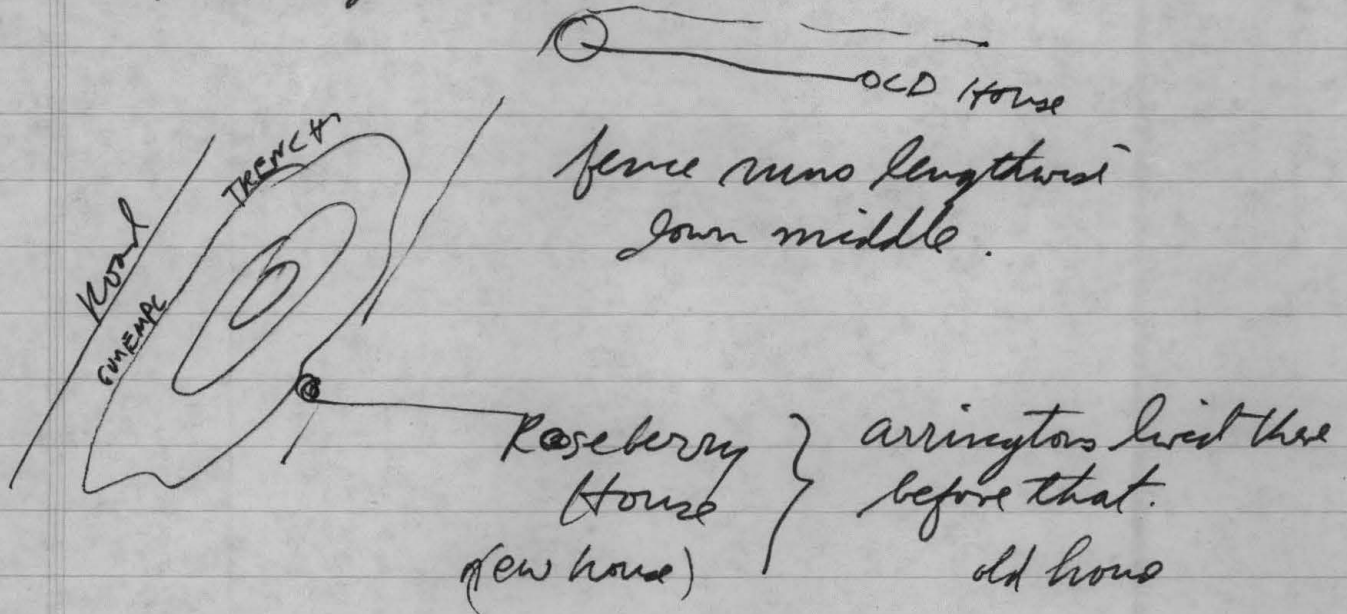 OLD House
fence runs lengthwise
down middle.
TRENCH
Road
GUN EMPL
Roseberry
House
(new house)
Arringtons lived there
before that.
old hous